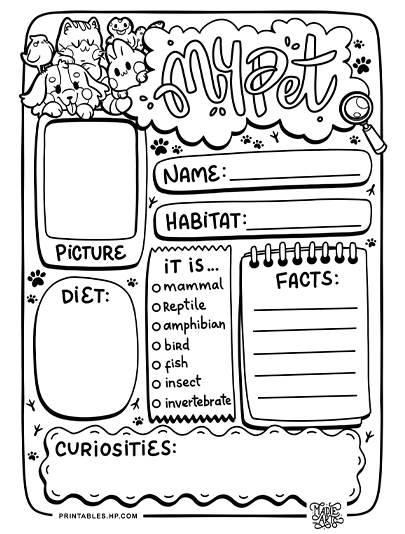 My Pet
NAME:
HABITAT:
PICTURE
DIET:
IT IS...
mammal
Reptile
amphibian
biRd
fish
insect
invertebrate
FACTS:
CURIOSITIES:
PRINTABLES.HP.COM
MADE
ARTS